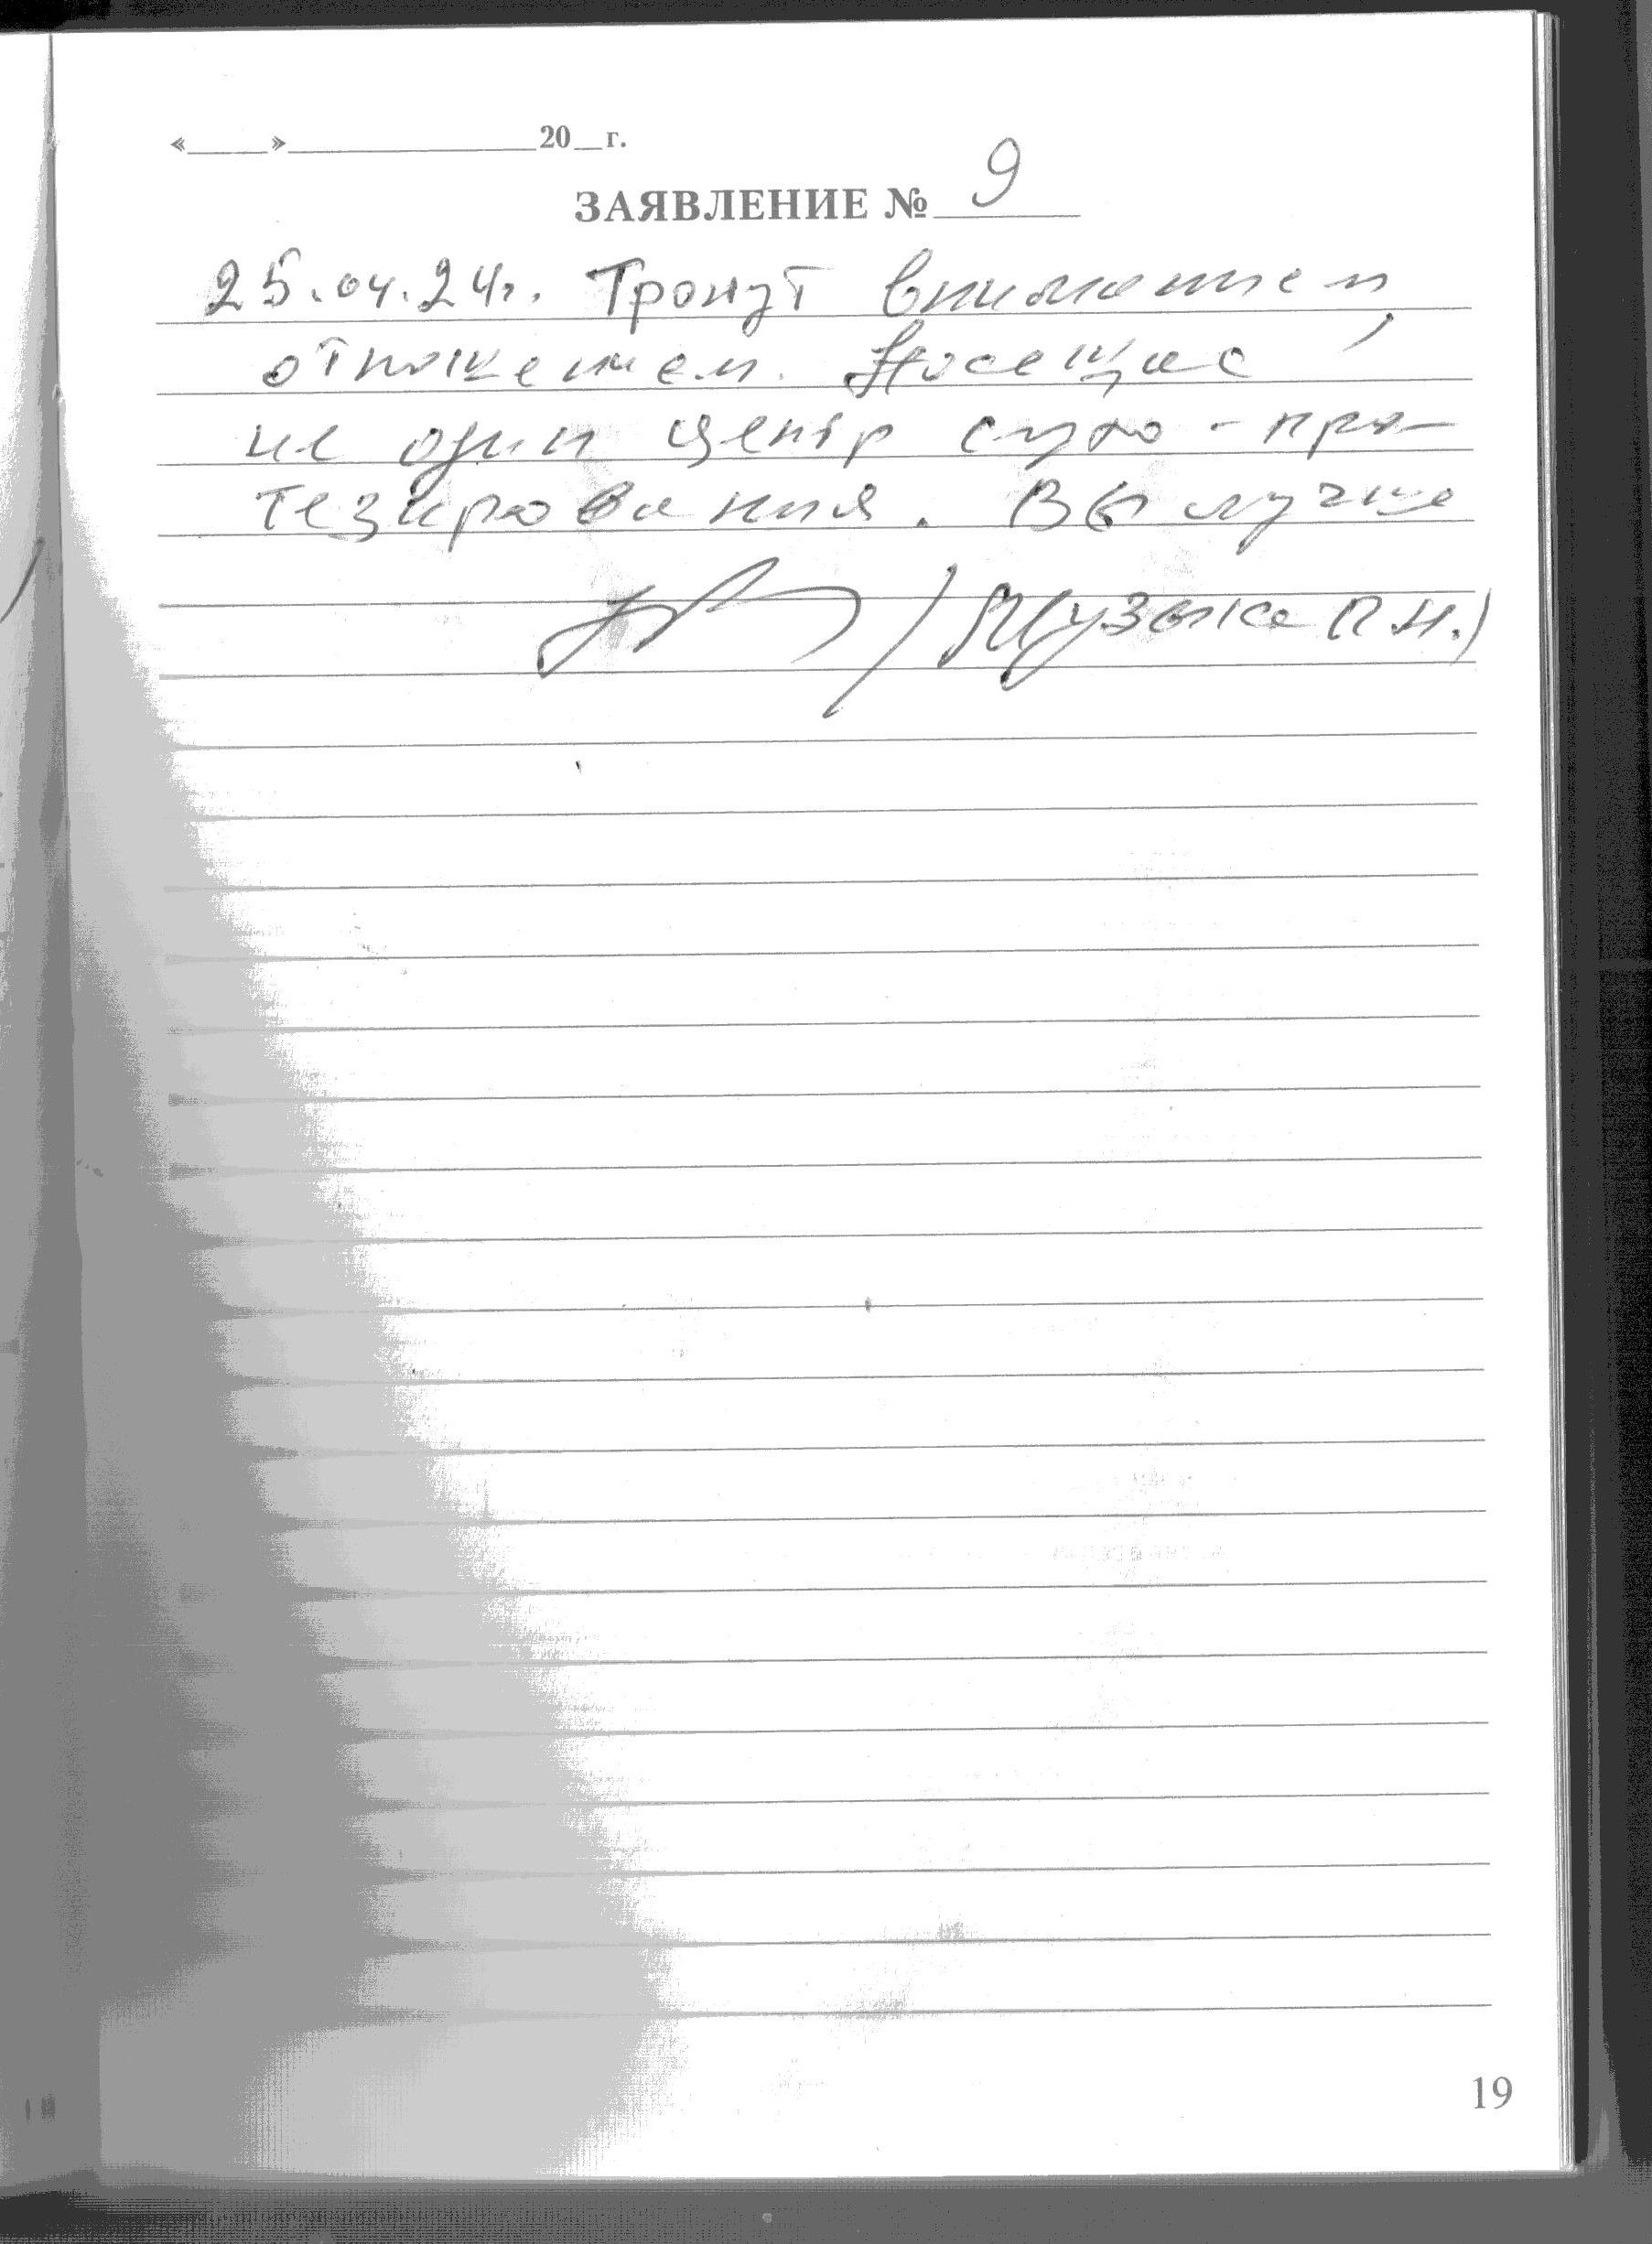 «____»______________20__г.
ЗАЯВЛЕНИЕ № 9
25.04.24г. Тронут вниманием,
отношением. Посещал
не один центр слухо-про-
тезирования. Вы лучше
/Музыка П.Н.)
19